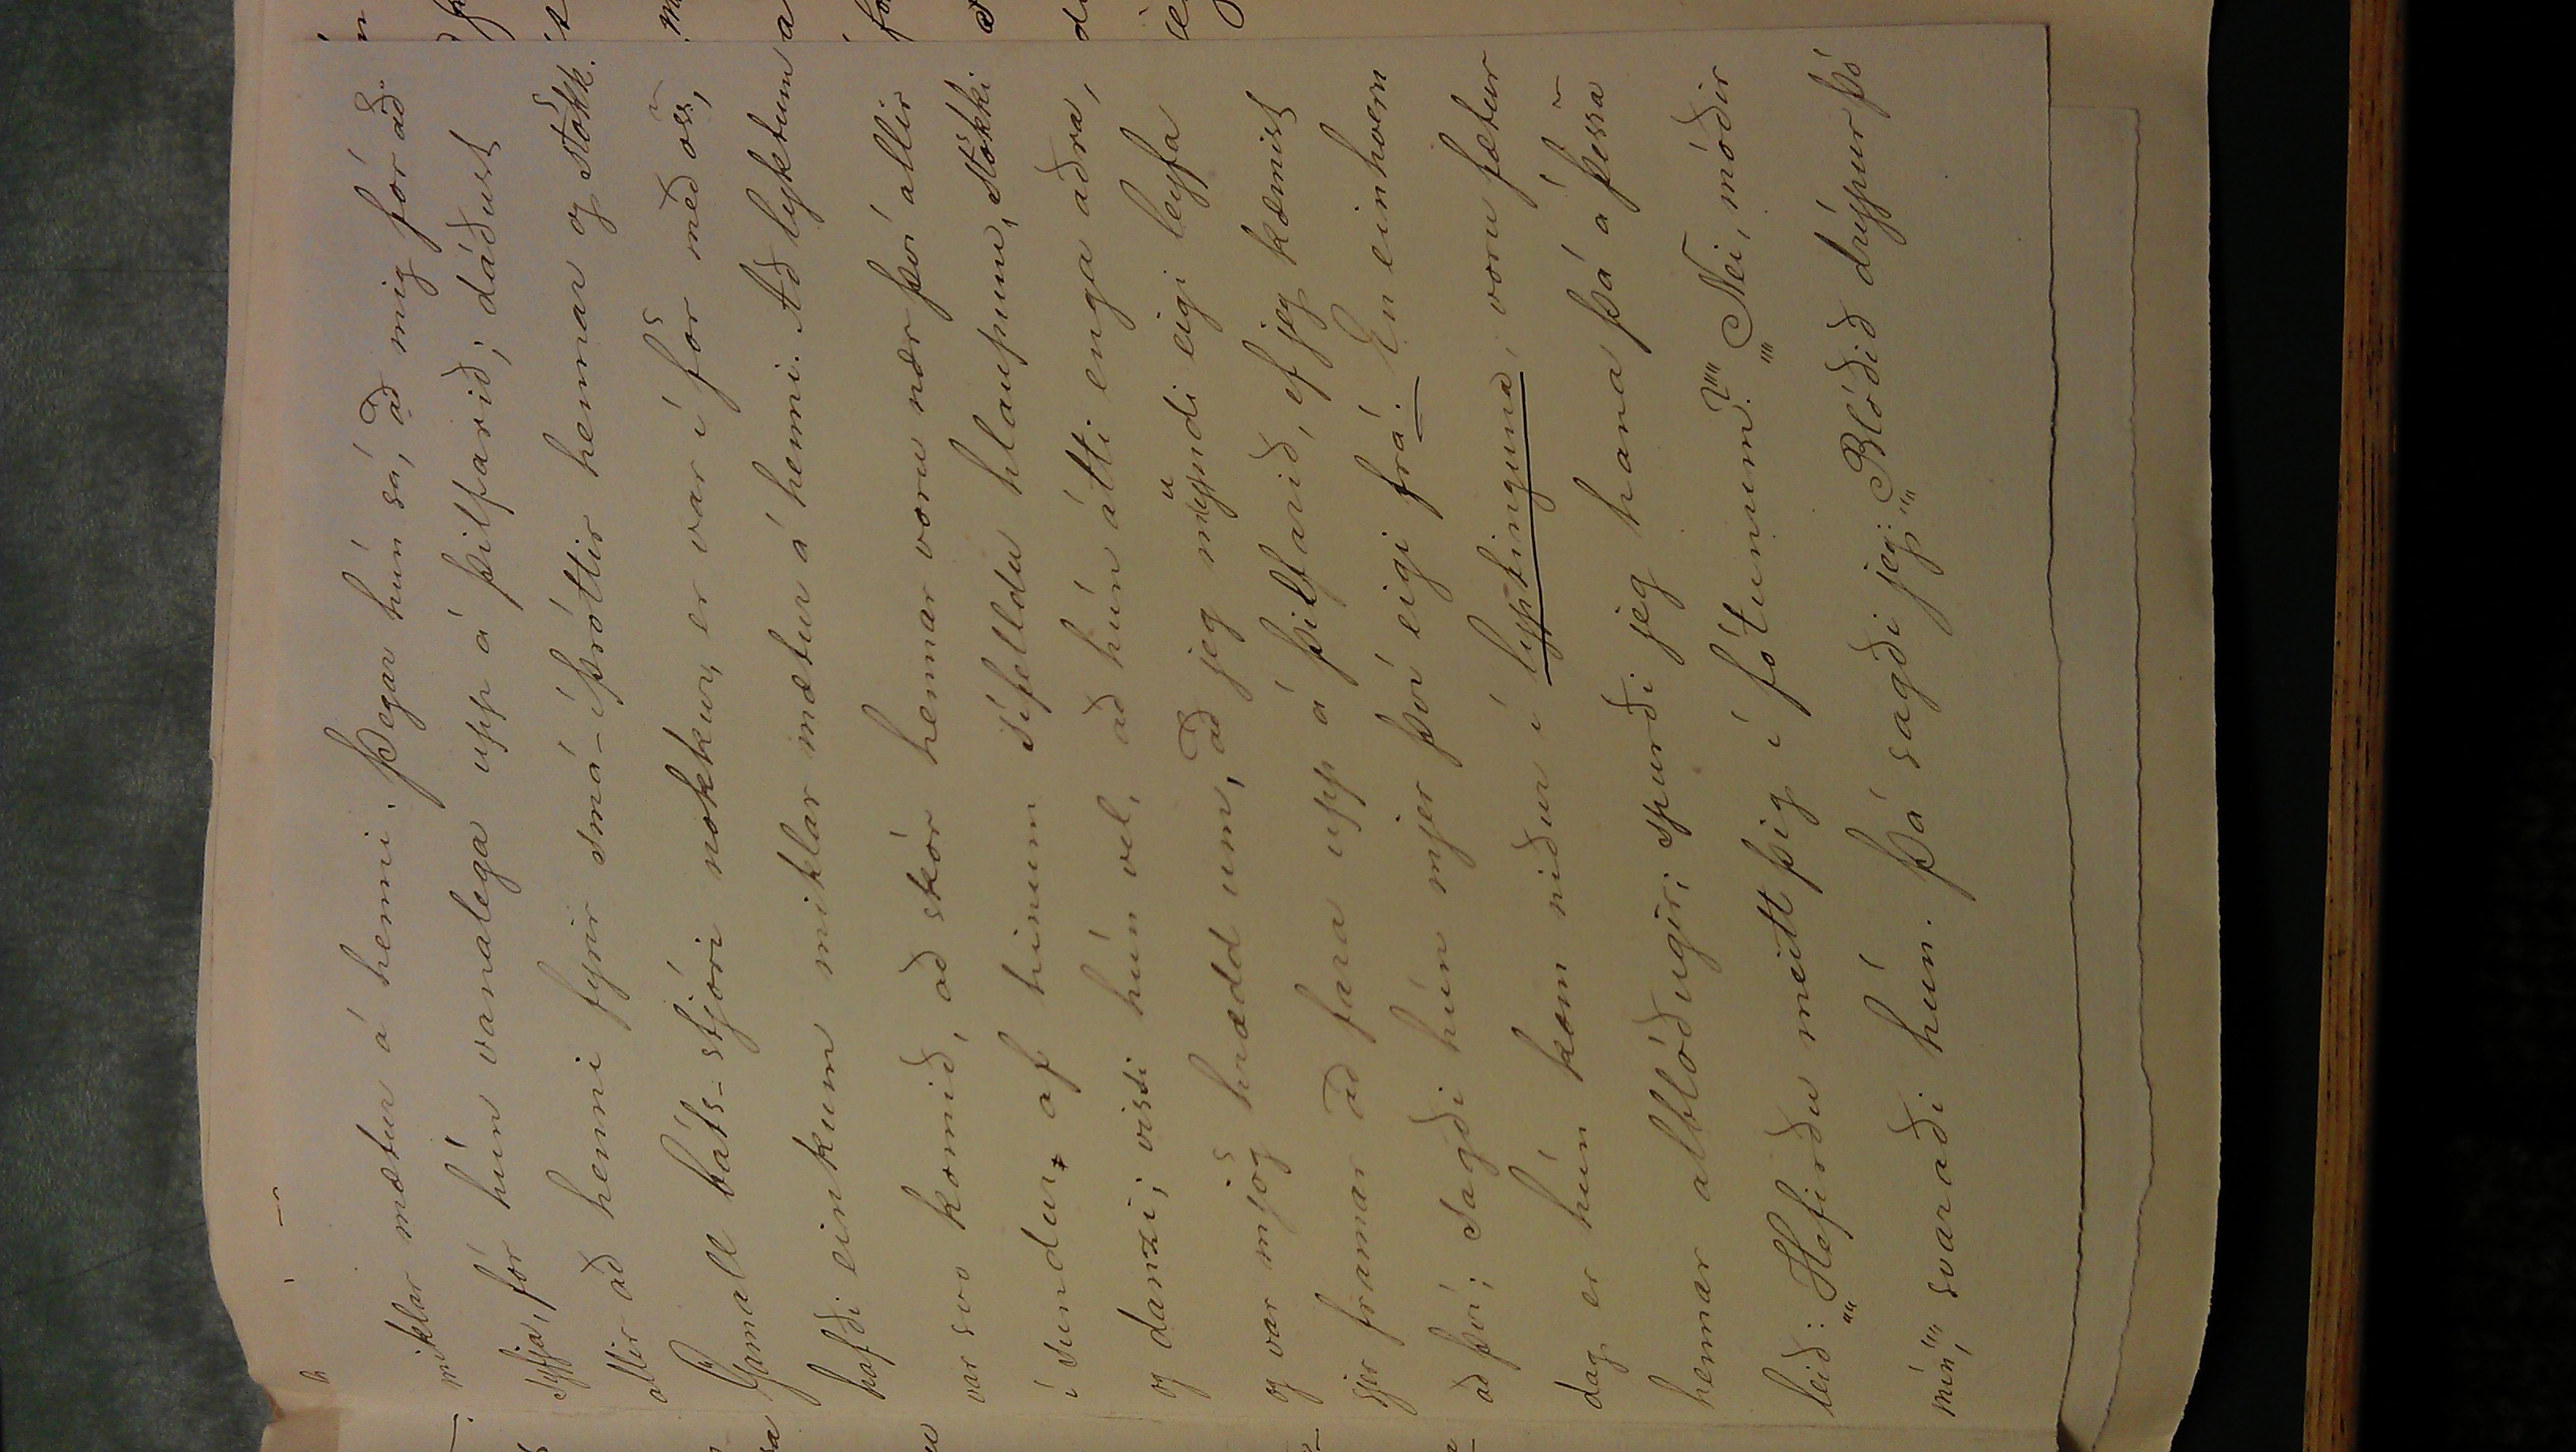 miklar mætur á henni. Þegar hún sá, að mig fór að
syfja, fór hún vanalega upp á þilfarið; dáðust
allir að henni fyrir smá-íþróttir hennar og stökk.
Gamall báts-stjóri nokkur, er var í för með oss,
hafði einkum miklar mætur á henni. Að lyktum
var svo komið, að skór hennar voru nær því allir
í sundur af hinum sífelldu hlaupum, stökki
og danzi; vissi hún vel, að hún átti enga aðra,
og var mjög hrædd um, að jeg mundi eigi leyfa
sjer framar að fara upp á þilfarið, ef jeg kæmist
að því; sagði hún mjer því eigi frá. En einhvern
dag, er hún kom niður í lyptinguna, voru fætur
hennar alblóðugir; spurði jeg hana þá á þessa
leið: „„Hefirðu meitt þig í fótunum?““ „„Nei, móðir
mín,““ svaraði hún. Þá sagði jeg: „„Blóðið drýpur þó